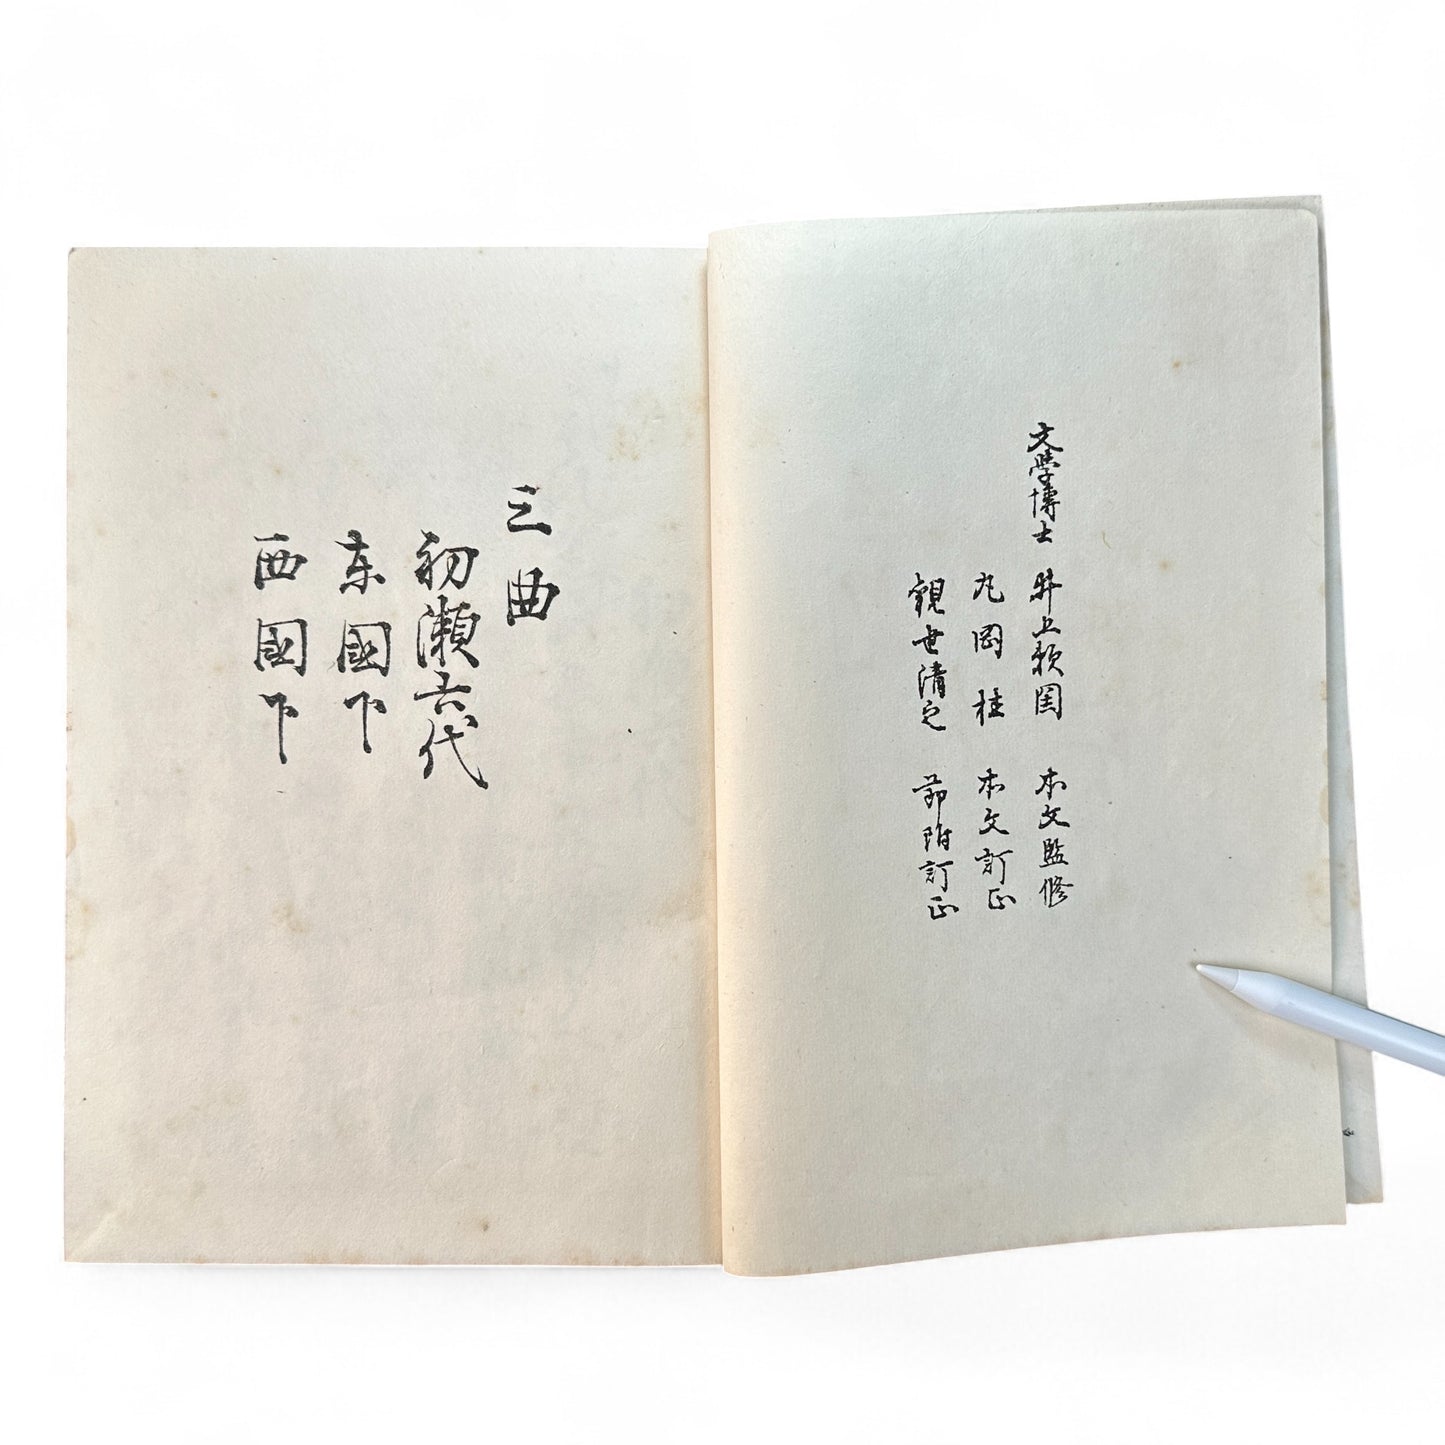 文學博士 井上頼圀 本文監修
丸岡桂 本文訂正
觀世清之 節附訂正
三曲
初瀬六代
东國下
西國下